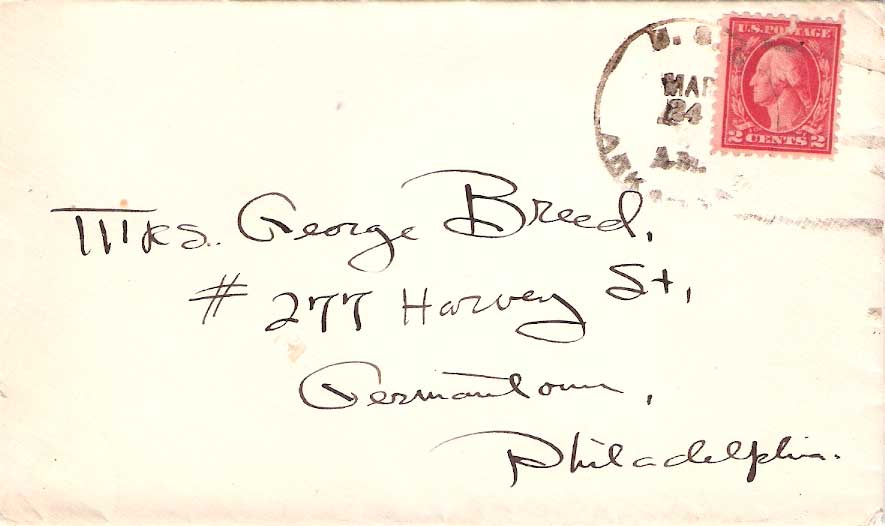 U. S.
MAR
24
A.M.
U.S. POSTAGE
2 CENTS 2
Mrs. George Breed,
# 277 Harvey St,
Germantown,
Philadelphia.